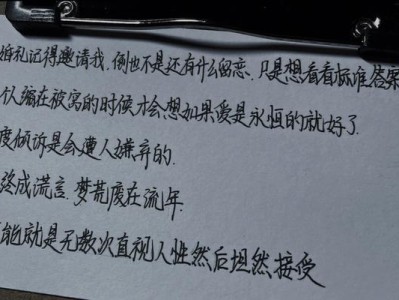 婚礼记得邀请我.倒也不是还有什么留恋.只是想看看标准答案
个人缩在被窝的时候才会想如果爱是永恒的就好了.
度倾诉是会遭人嫌弃的.
终成谎言.梦荒废在流年.
能就是无数次直视人性然后坦然接受